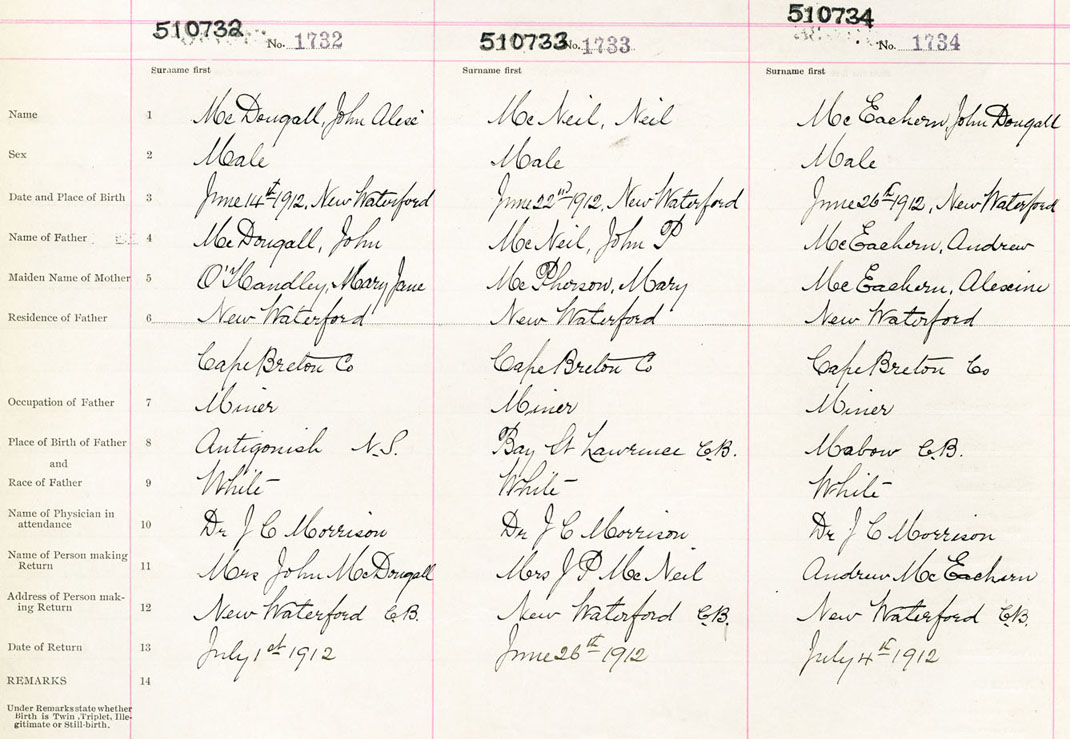 510732 No. 1732 510733 No. 1733 510734 No. 1734
Surname first Surname first Surname first
Name 1 McDougall, John Alexr McNeil, Neil McEachern, John Dougall
Sex 2 Male Male Male
Date and Place of Birth 3 June 14th 1912, New Waterford June 22nd 1912, New Waterford June 26th 1912, New Waterford
Name of Father 4 McDougall, John McNeil, John P McEachern, Andrew
Maiden Name of Mother 5 O'Handley, Mary Jane McPherson, Mary McEachern, Alexcine
Residence of Father 6 New Waterford New Waterford New Waterford
Cape Breton Co Cape Breton Co Cape Breton Co
Occupation of Father 7 Miner Miner Miner
Place of Birth of Father 8 Antigonish N.S. Bay St Lawrence C.B. Mabow C.B.
and
Race of Father 9 White White White
Name of Physician in
attendance 10 Dr J C Morrison Dr J C Morrison Dr J C Morrison
Name of Person making
Return 11 Mrs John McDougall Mrs J P McNeil Andrew McEachern
Address of Person mak-
ing Return 12 New Waterford C.B. New Waterford C.B. New Waterford C.B.
Date of Return 13 July 1st 1912 June 26th 1912 July 4th 1912
REMARKS 14
Under Remarks state whether
Birth is Twin, Triplet, Ille-
gitimate or Still-birth.